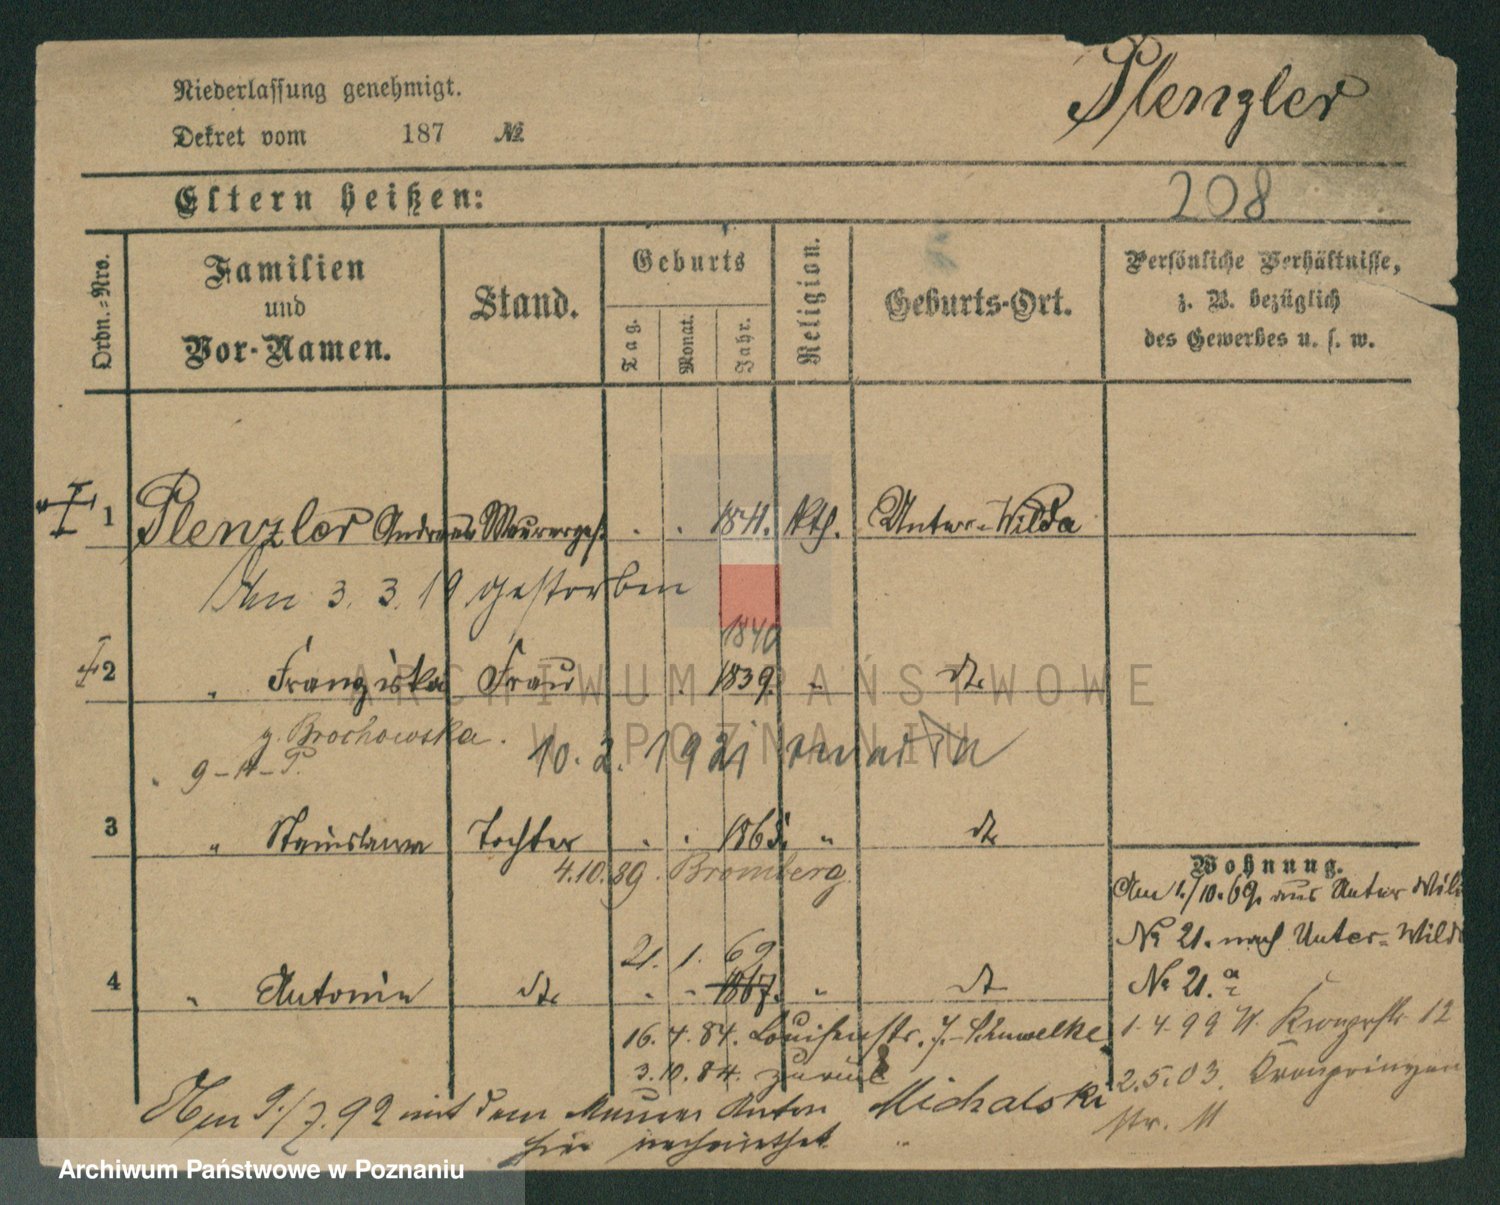 Niederlassung genehmigt.
Dekret vom 187 №
Plenzler
Eltern heißen:
208
Ordn.-Nro.
Familien und Vor-Namen.
Stand.
Geburts
Tag.
Monat.
Jahr.
Religion.
Geburts-Ort.
Persönliche Verhältnisse, z. B. bezüglich des Gewerbes u. s. w.
1 Plenzler Andreas Maurerges. 1841. kth. Unter-Wilda
Den 3. 3. 19 gestorben
1840
2 " Franziska Frau 1839. " dto
g. Brochowska.
10. 2. 1921
3 " Stanislawa Tochter 1865. " dto
4.10.89. Bromberg.
Wohnung.
Am 1./10.69. aus Unter Wilda
No 21. nach Unter-Wilda
No 21.a
21. 1. 69
4 " Antonie dto 1867. " dto
16.4.84. Louisenstr. 7.
1.4.99 W. Kronprstr. 12
3.10.84. zurück
2.5.03. Kronprinzen
str. 11
Am 9./7.92 mit dem Maurer Anton Michalski
hier verheirathet
ARCHIWUM PAŃSTWOWE
W POZNANIU
Archiwum Państwowe w Poznaniu